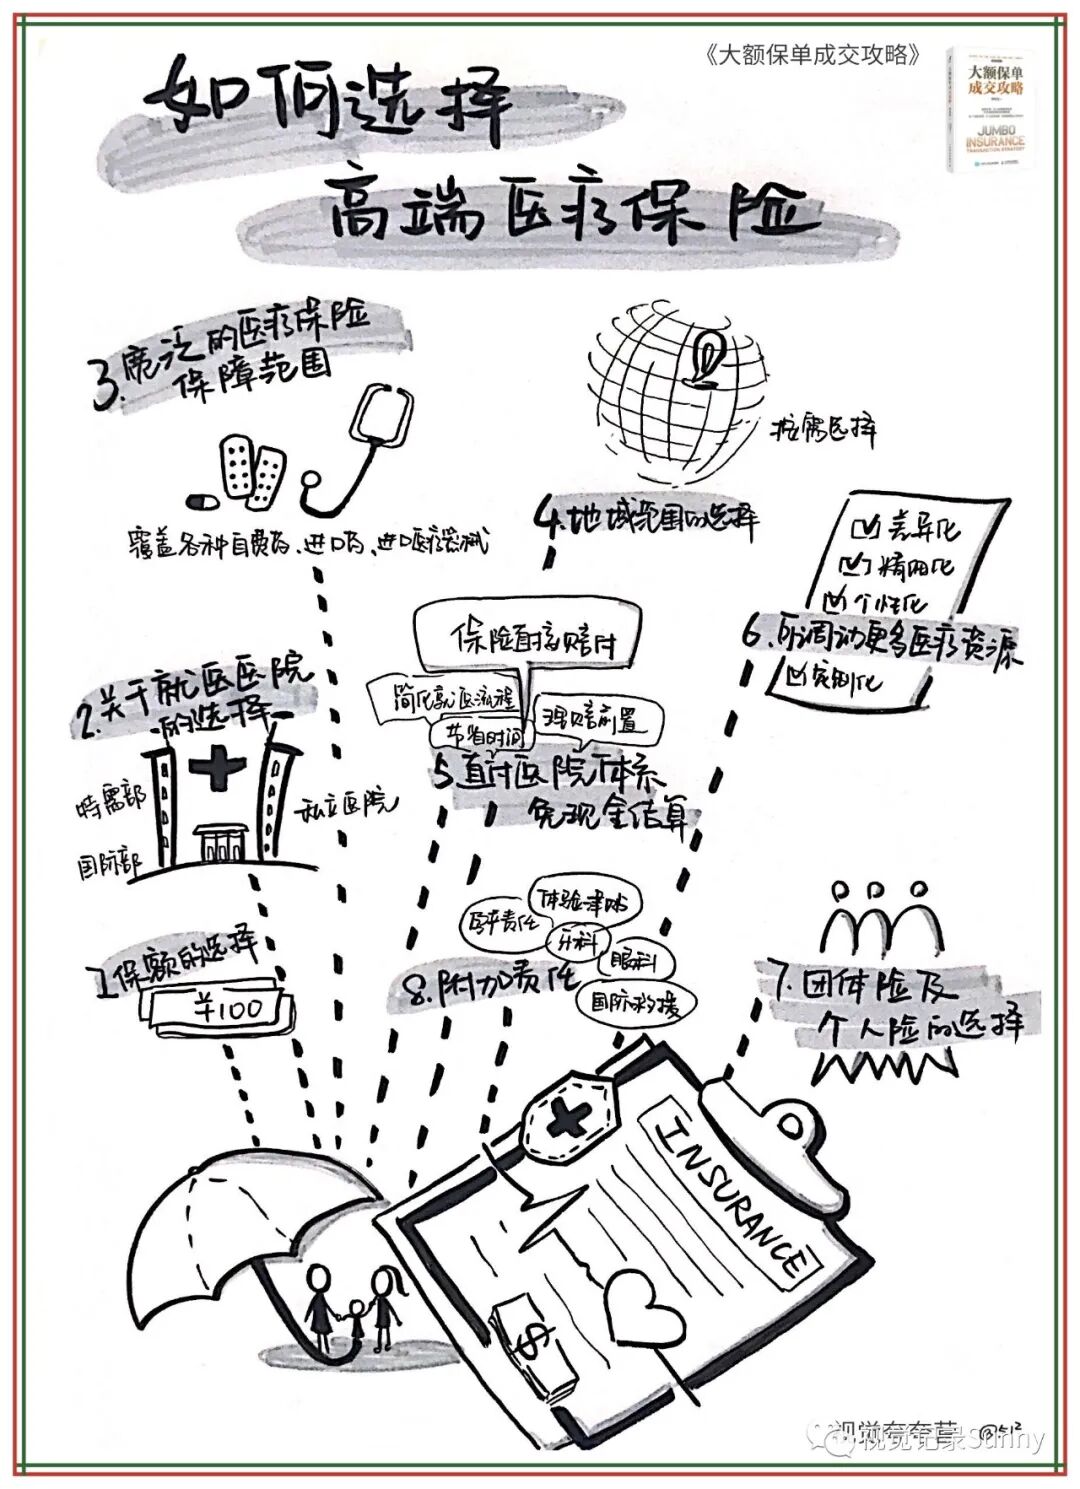 《大额保单成交攻略》
大额保单
成交攻略
JUMBO
INSURANCE
TRANSACTION STRATEGY
如何选择
高端医疗保险
3.宽泛的医疗保险
保障范围
覆盖各种自费药、进口药、进口医疗器械
按需选择
4.地域范围的选择
差异化
精细化
个性化
6.可调动更多医疗资源
定制化
保险直接赔付
简化就医流程
节省时间
理赔前置
5.直付医院体系
免现金结算
2.关于就医医院
的选择
特需部
国际部
私立医院
1.保额的选择
¥100
8.附加责任
体验津贴
牙科
眼科
国际救援
7.团体险及
个人险的选择
INSURANCE
$
视觉夸夸营
视觉记录Sunny